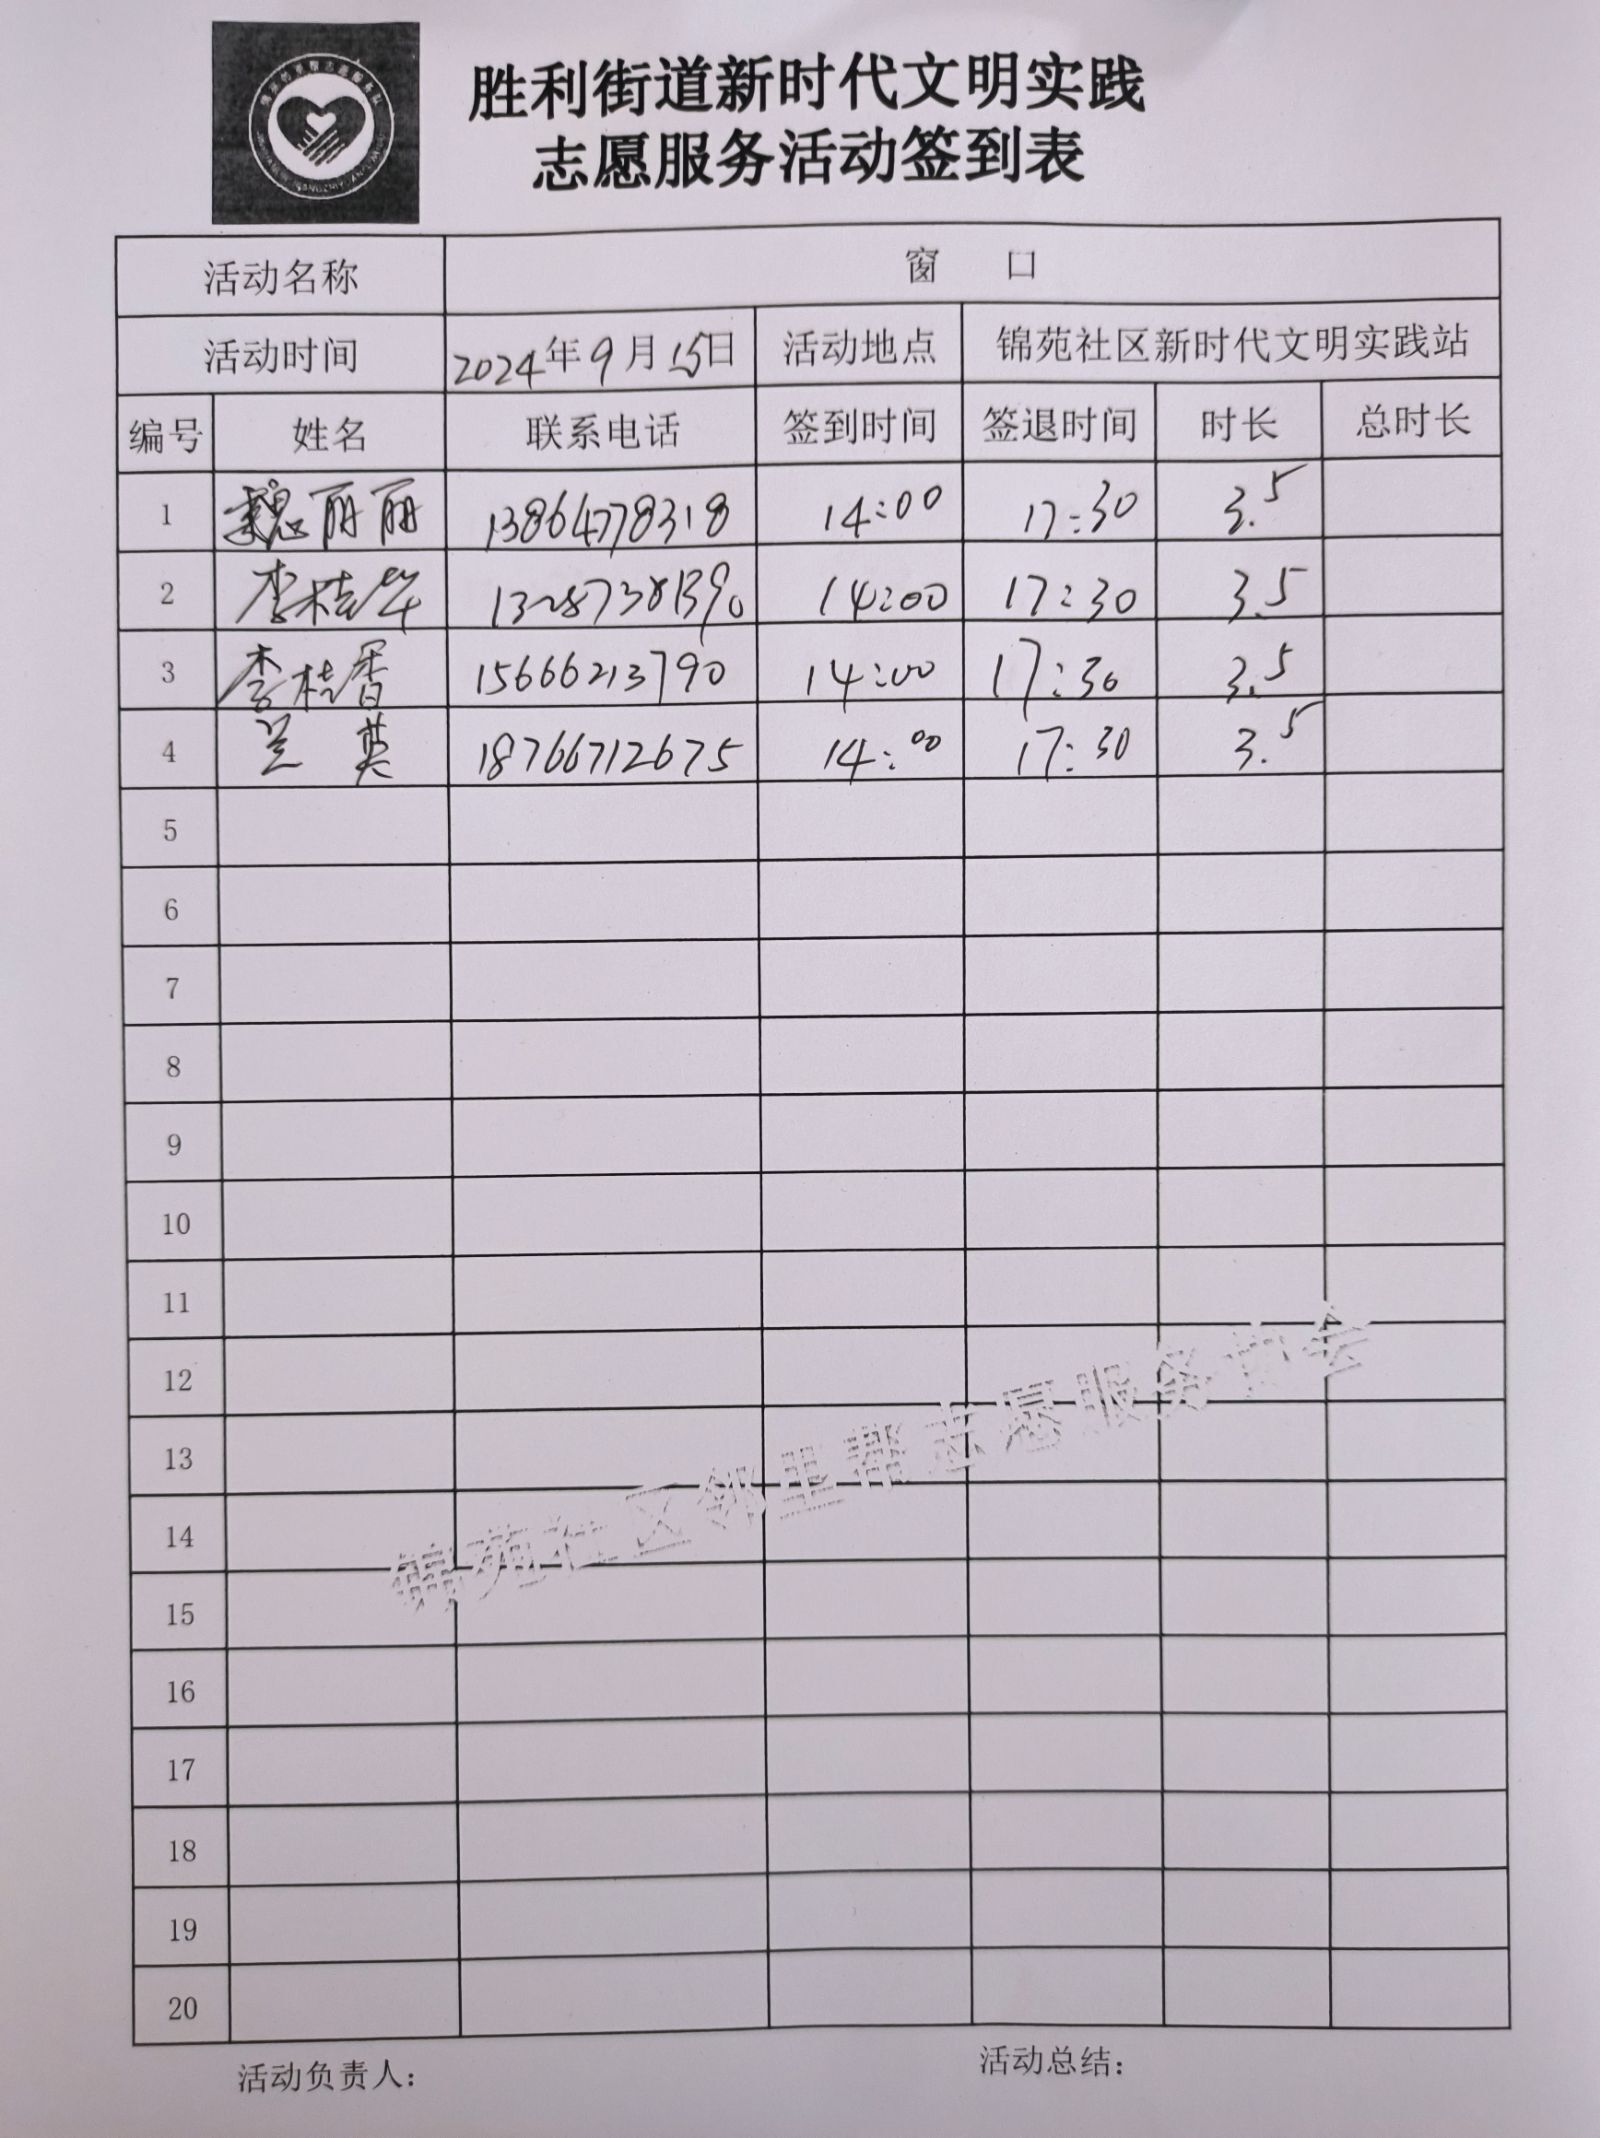 胜利街道新时代文明实践
志愿服务活动签到表
活动名称 窗 口
活动时间 2024年9月15日 活动地点 锦苑社区新时代文明实践站
编号 姓名 联系电话 签到时间 签退时间 时长 总时长
1 魏丽丽 13864778318 14:00 17:30 3.5
2 李桂华 13287381390 14:00 17:30 3.5
3 李桂香 15666213790 14:00 17:30 3.5
4 兰英 18766712675 14:00 17:30 3.5
5
6
7
8
9
10
11
12
13
14
15
16
17
18
19
20
锦苑社区邻里帮志愿服务协会
活动负责人： 活动总结：